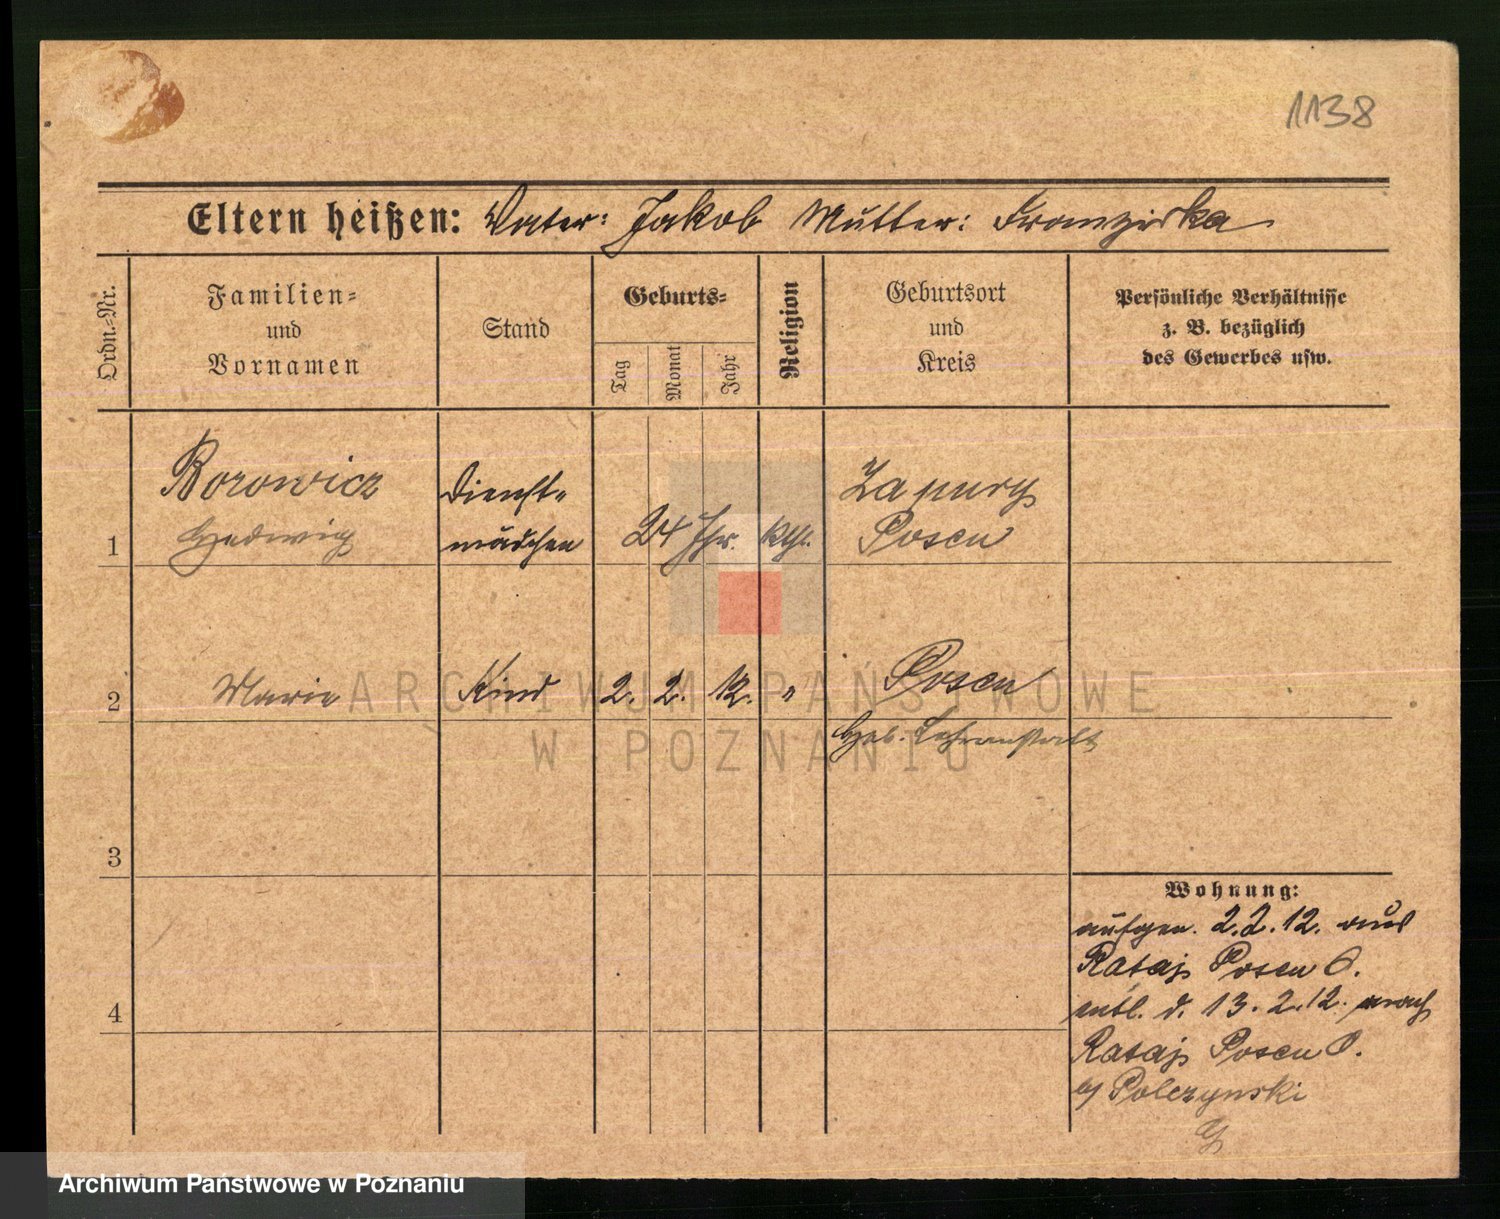 1138
Eltern heißen: Vater: Jakob Mutter: Franziska
Ordn.-Nr.
Familien-
und
Vornamen
Stand
Geburts-
Tag
Monat
Jahr
Religion
Geburtsort
und
Kreis
Persönliche Verhältnisse
z. B. bezüglich
des Gewerbes usw.
1
Borowicz
Hedwig
Dienst-
mädchen
24 Jhr. kth.
Posen
2
Marie
Kind
2. 2. 12. "
Posen
Heb. Lehranstalt
3
4
Wohnung:
aufgen. 2.2.12. aus
Rataj Posen O.
entl. d. 13.2.12. nach
Rataj Posen O.
b/ Polczynski
ARCHIWUM PAŃSTWOWE
W POZNANIU
Archiwum Państwowe w Poznaniu